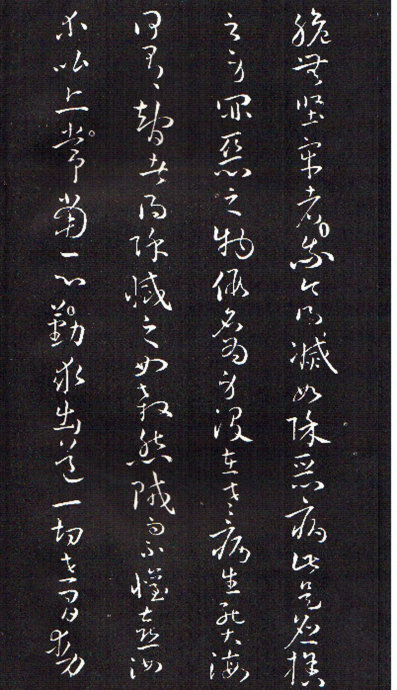 脆無堅牢者我今得滅如除惡病此是應捨
之身罪惡之物假名為身沒在老病生死大海
何有智者得除滅之如殺怨賊而不歡喜汝
等比丘常當一心勤求出道一切世間動